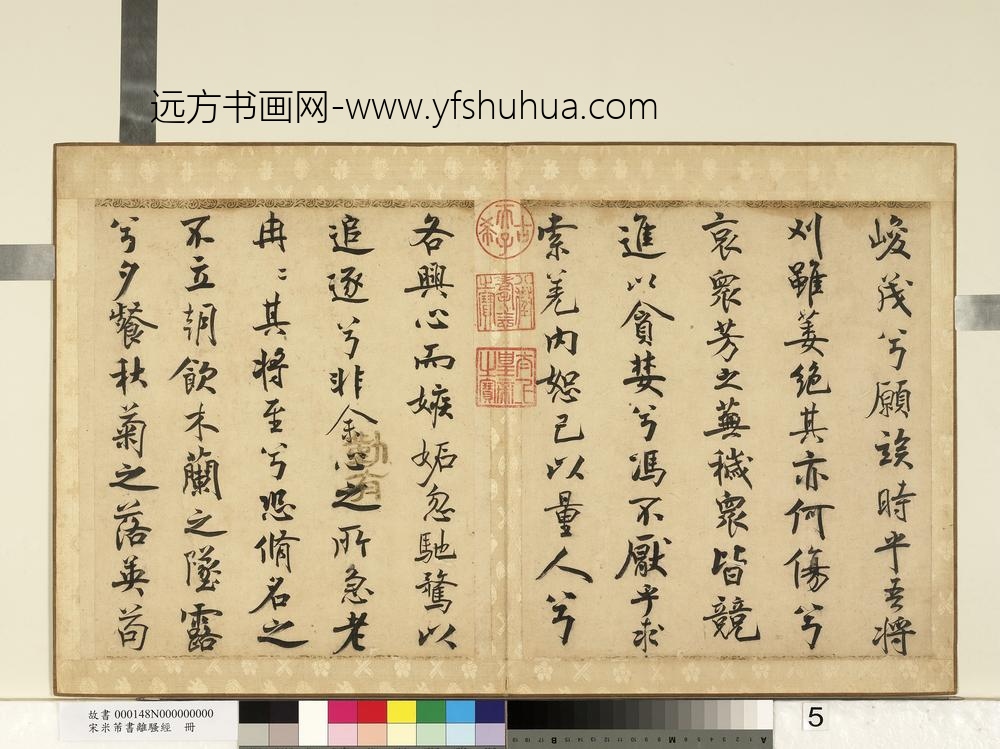 远方书画网-www.yfshuhua.com
峻茂兮願竢時乎吾將
刈雖萎絕其亦何傷兮
哀衆芳之蕪穢衆皆競
進以貪婪兮馮不厭乎求
索羌內恕己以量人兮
各興心而嫉妬忽馳騖以
追逐兮非余心之所急老
冉〻其將至兮恐脩名之
不立朝飲木蘭之墜露
兮夕餐秋菊之落英苟
故書 000148N000000000
宋米芾書離騷經 冊
5